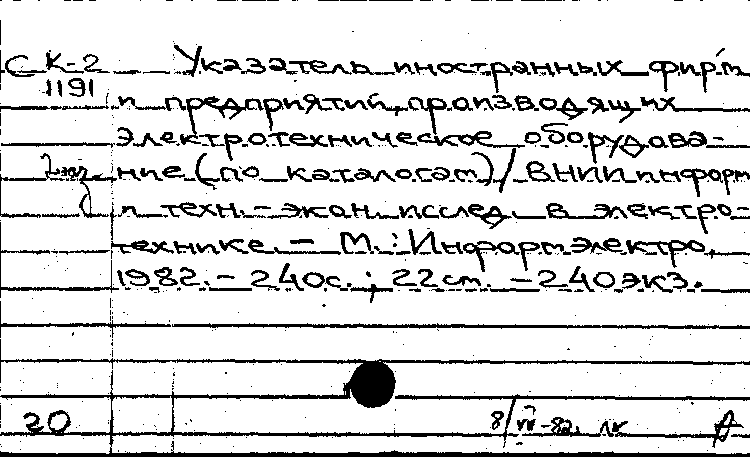 С К-2 Указатель иностранных фирм
1191 и предприятий, производящих
электротехническое оборудова-
2экз. ние (по каталогам) / ВНИИ информ
и техн.-экон. исслед. в электро-
технике. - М.: Информэлектро,
1982. - 240с.; 22см. - 240экз.
20 8/VII-82. лк